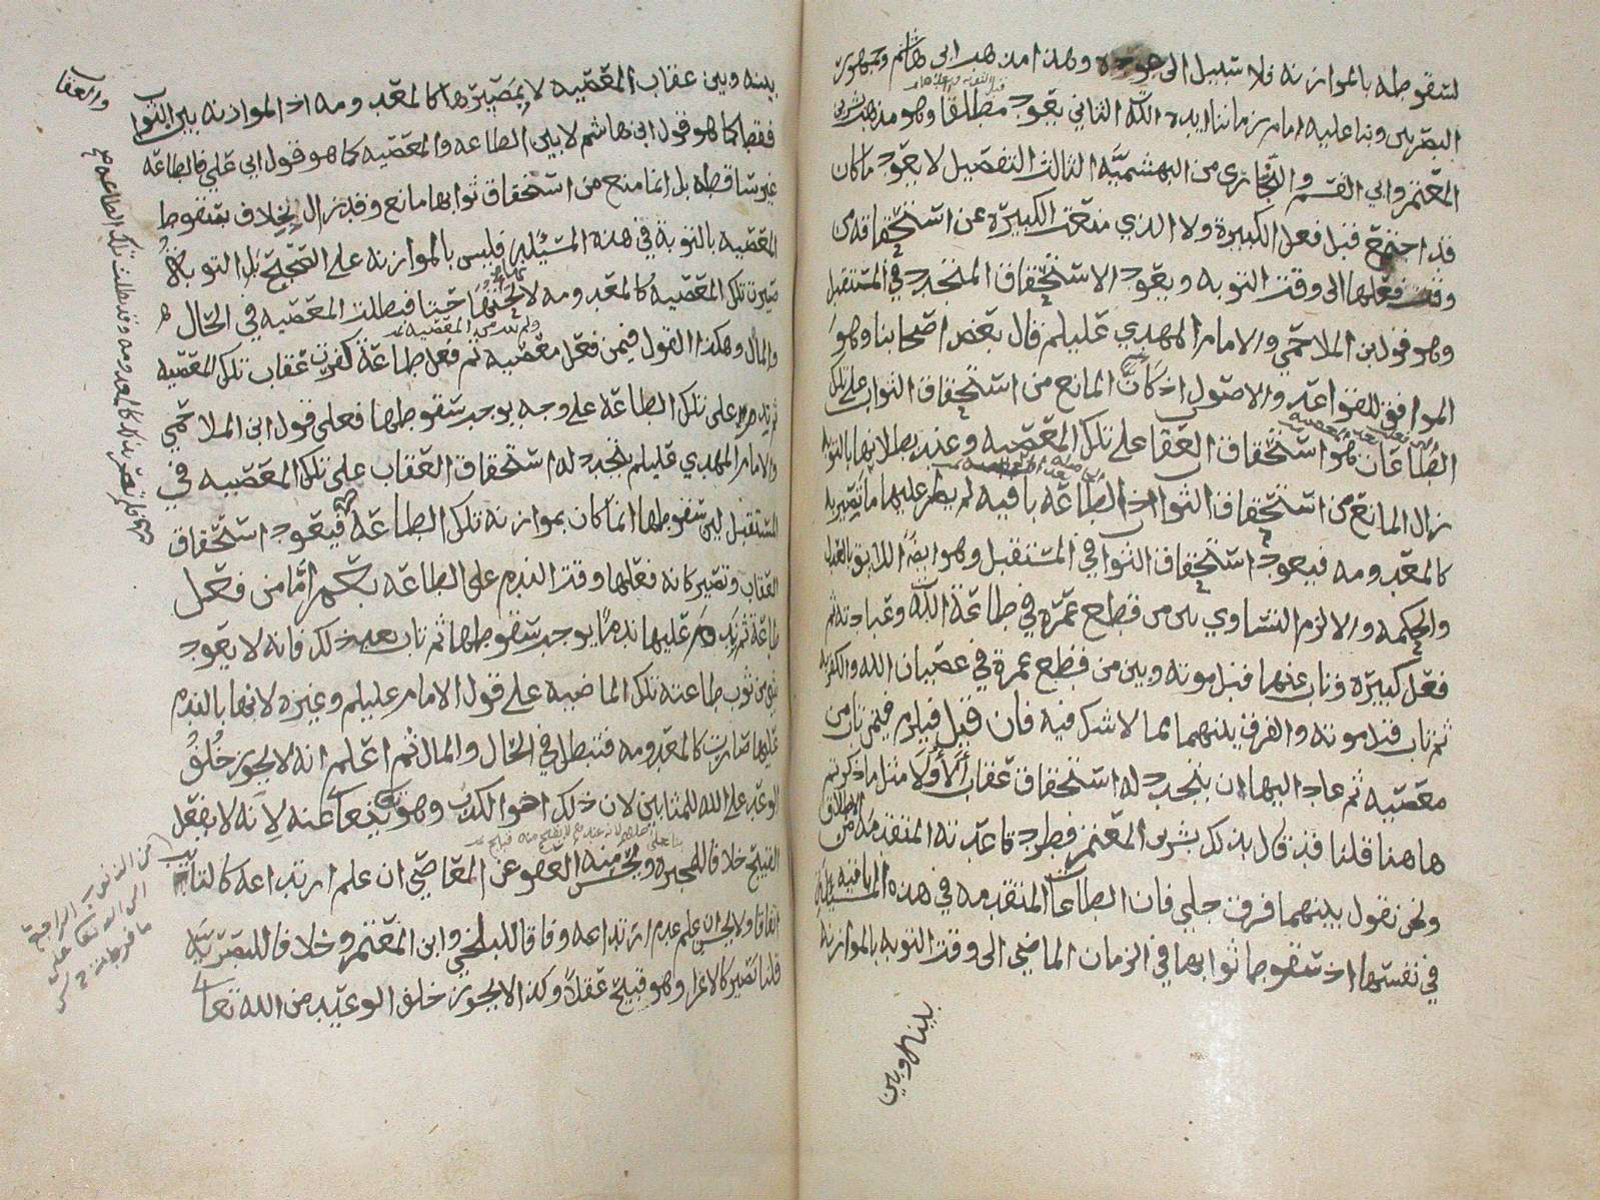 لسقوطه بالموازنه فلا سبيل الى عوده وهذا مذهب ابي هاشم وجمهور
البصريين وبنا عليه امام زماننا ايده الله الثاني يعود مطلقا وهو مذهب بشر بن
المعتمر وابي القسم والبخاري من البهشميه الثالث التفصيل لا يعود ما كان
قد اجتمع قبل فعل الكبيرة ولا الذي منعت الكبيرة عن استحقاقه من
وقت فعلها الى وقت التوبه ويعود الاستحقاق المتجدد في المستقبل
وهو قول ابن الملاحمي والامام المهدي عليلم قال بعض اصحابنا وهو
الموافق للقواعد والاصول اذ كان المانع من استحقاق الثواب على تلك
الطاعات هو استحقاق العقاب على تلك المعصيه وعند بطلانها بالتوبه
زال المانع من استحقاق الثواب اذ الطاعه باقيه لم يطر عليها ما تصير به
كالمعدومه فيعود استحقاق الثواب في المستقبل وهو ايضا اللايق بالعدل
والحكمه والا لزم التساوي بين من قطع عمره في طاعة الله وعبادته ثم
فعل كبيرة وتاب عنها قبل موته وبين من قطع عمره في عصيان الله والكفر به
ثم تاب قبل موته والفرق بينهما مما لا شك فيه فان قيل فيلزم فيمن تاب من
معصيه ثم عاد اليها ان يتجدد له استحقاق عقاب الاولى مثل ما ذكرتم
هاهنا قلنا قد قال بذلك بشر بن المعتمر فطرد قاعدته المتقدمه من الاطلاق
ونحن نقول بينهما فرق جلي فان الطاعة المتقدمه في هذه المسيله باقيه
في نفسها اذ سقوط ثوابها في الزمان الماضي الى وقت التوبه بالموازنه
بينه وبين
بينه وبين عقاب المعصيه لا يصيرها كالمعدومه اذ الموازنه بين الثواب
والعقاب
فقط كما هو قول ابي هاشم لا بين الطاعه والمعصيه كما هو قول ابي علي فالطاعه
غير ساقطه بل انما منع من استحقاق ثوابها مانع وقد زال بخلاف سقوط
المعصيه بالتوبة في هذه المسيله فليس بالموازنه على الصحيح بل التوبه
صيرت تلك المعصيه كالمعدومه فبطلت المعصيه في الحال
والمال وهكذا القول فيمن فعل معصيه ثم فعل طاعة كفرت عقاب تلك المعصيه
ثم ندم على تلك الطاعه على وجه يوجب سقوطها فعلى قول ابن الملاحمي
والامام المهدي عليلم يتجدد له استحقاق العقاب على تلك المعصيه في
المستقبل لان سقوطها انما كان بموازنة تلك الطاعه فيعود استحقاق
العقاب وتصير كانه فعلها وقت الندم على الطاعه اما من فعل
طاعة ثم ندم عليها ندما يوجب سقوطها ثم تاب بعد ذلك فانه لا يعود
شي من ثوب طاعته تلك الماضيه على قول الامام عليلم وغيره لانها بالندم
عليها صارت كالمعدومه فتبطل في الحال والمال ثم اعلم انه لا يجوز خلف
الوعد على الله للمثابين لان ذلك اخو الكذب وهو يتعالى عنه لانه لا يفعل
القبيح خلافا للمجبره ويحسن منه العفو عن المعاصي ان علم ارتداعه كالتايب
اتفاقا ولا يحسن ان علم عدم ارتداعه وفاقا للبلخي وابن المعتمر وخلافا للبصريه
قلنا تصير كالاغرا وهو قبيح عقلا وكذا لا يجوز خلف الوعيد من الله تعالى